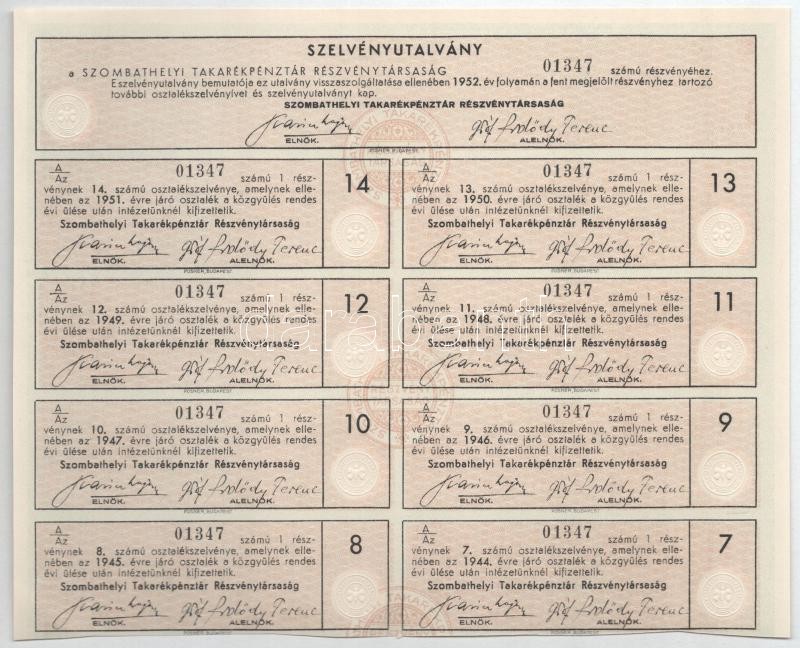 SZELVÉNYUTALVÁNY
a SZOMBATHELYI TAKARÉKPÉNZTÁR RÉSZVÉNYTÁRSASÁG 01347 számú részvényéhez.
E szelvényutalvány bemutatója ez utalvány visszaszolgáltatása ellenében 1952. év folyamán a fent megjelölt részvényhez tartozó
további osztalékszelvényivet és szelvényutalványt kap.
SZOMBATHELYI TAKARÉKPÉNZTÁR RÉSZVÉNYTÁRSASÁG
gróf Erdődy Ferenc
ELNÖK. ALELNÖK.
POSNER, BUDAPEST
A/Az 01347 számú 1 rész-
vénynek 14. számú osztalékszelvénye, amelynek elle-
nében az 1951. évre járó osztalék a közgyűlés rendes
évi ülése után intézetünknél kifizettetik.
Szombathelyi Takarékpénztár Részvénytársaság
gróf Erdődy Ferenc
ELNÖK. ALELNÖK.
14
POSNER, BUDAPEST
A/Az 01347 számú 1 rész-
vénynek 13. számú osztalékszelvénye, amelynek elle-
nében az 1950. évre járó osztalék a közgyűlés rendes
évi ülése után intézetünknél kifizettetik.
Szombathelyi Takarékpénztár Részvénytársaság
gróf Erdődy Ferenc
ELNÖK. ALELNÖK.
13
POSNER, BUDAPEST
A/Az 01347 számú 1 rész-
vénynek 12. számú osztalékszelvénye, amelynek elle-
nében az 1949. évre járó osztalék a közgyűlés rendes
évi ülése után intézetünknél kifizettetik.
Szombathelyi Takarékpénztár Részvénytársaság
gróf Erdődy Ferenc
ELNÖK. ALELNÖK.
12
POSNER, BUDAPEST
A/Az 01347 számú 1 rész-
vénynek 11. számú osztalékszelvénye, amelynek elle-
nében az 1948. évre járó osztalék a közgyűlés rendes
évi ülése után intézetünknél kifizettetik.
Szombathelyi Takarékpénztár Részvénytársaság
gróf Erdődy Ferenc
ELNÖK. ALELNÖK.
11
POSNER, BUDAPEST
A/Az 01347 számú 1 rész-
vénynek 10. számú osztalékszelvénye, amelynek elle-
nében az 1947. évre járó osztalék a közgyűlés rendes
évi ülése után intézetünknél kifizettetik.
Szombathelyi Takarékpénztár Részvénytársaság
gróf Erdődy Ferenc
ELNÖK. ALELNÖK.
10
POSNER, BUDAPEST
A/Az 01347 számú 1 rész-
vénynek 9. számú osztalékszelvénye, amelynek elle-
nében az 1946. évre járó osztalék a közgyűlés rendes
évi ülése után intézetünknél kifizettetik.
Szombathelyi Takarékpénztár Részvénytársaság
gróf Erdődy Ferenc
ELNÖK. ALELNÖK.
9
POSNER, BUDAPEST
A/Az 01347 számú 1 rész-
vénynek 8. számú osztalékszelvénye, amelynek elle-
nében az 1945. évre járó osztalék a közgyűlés rendes
évi ülése után intézetünknél kifizettetik.
Szombathelyi Takarékpénztár Részvénytársaság
gróf Erdődy Ferenc
ELNÖK. ALELNÖK.
8
POSNER, BUDAPEST
A/Az 01347 számú 1 rész-
vénynek 7. számú osztalékszelvénye, amelynek elle-
nében az 1944. évre járó osztalék a közgyűlés rendes
évi ülése után intézetünknél kifizettetik.
Szombathelyi Takarékpénztár Részvénytársaság
gróf Erdődy Ferenc
ELNÖK. ALELNÖK.
7
POSNER, BUDAPEST